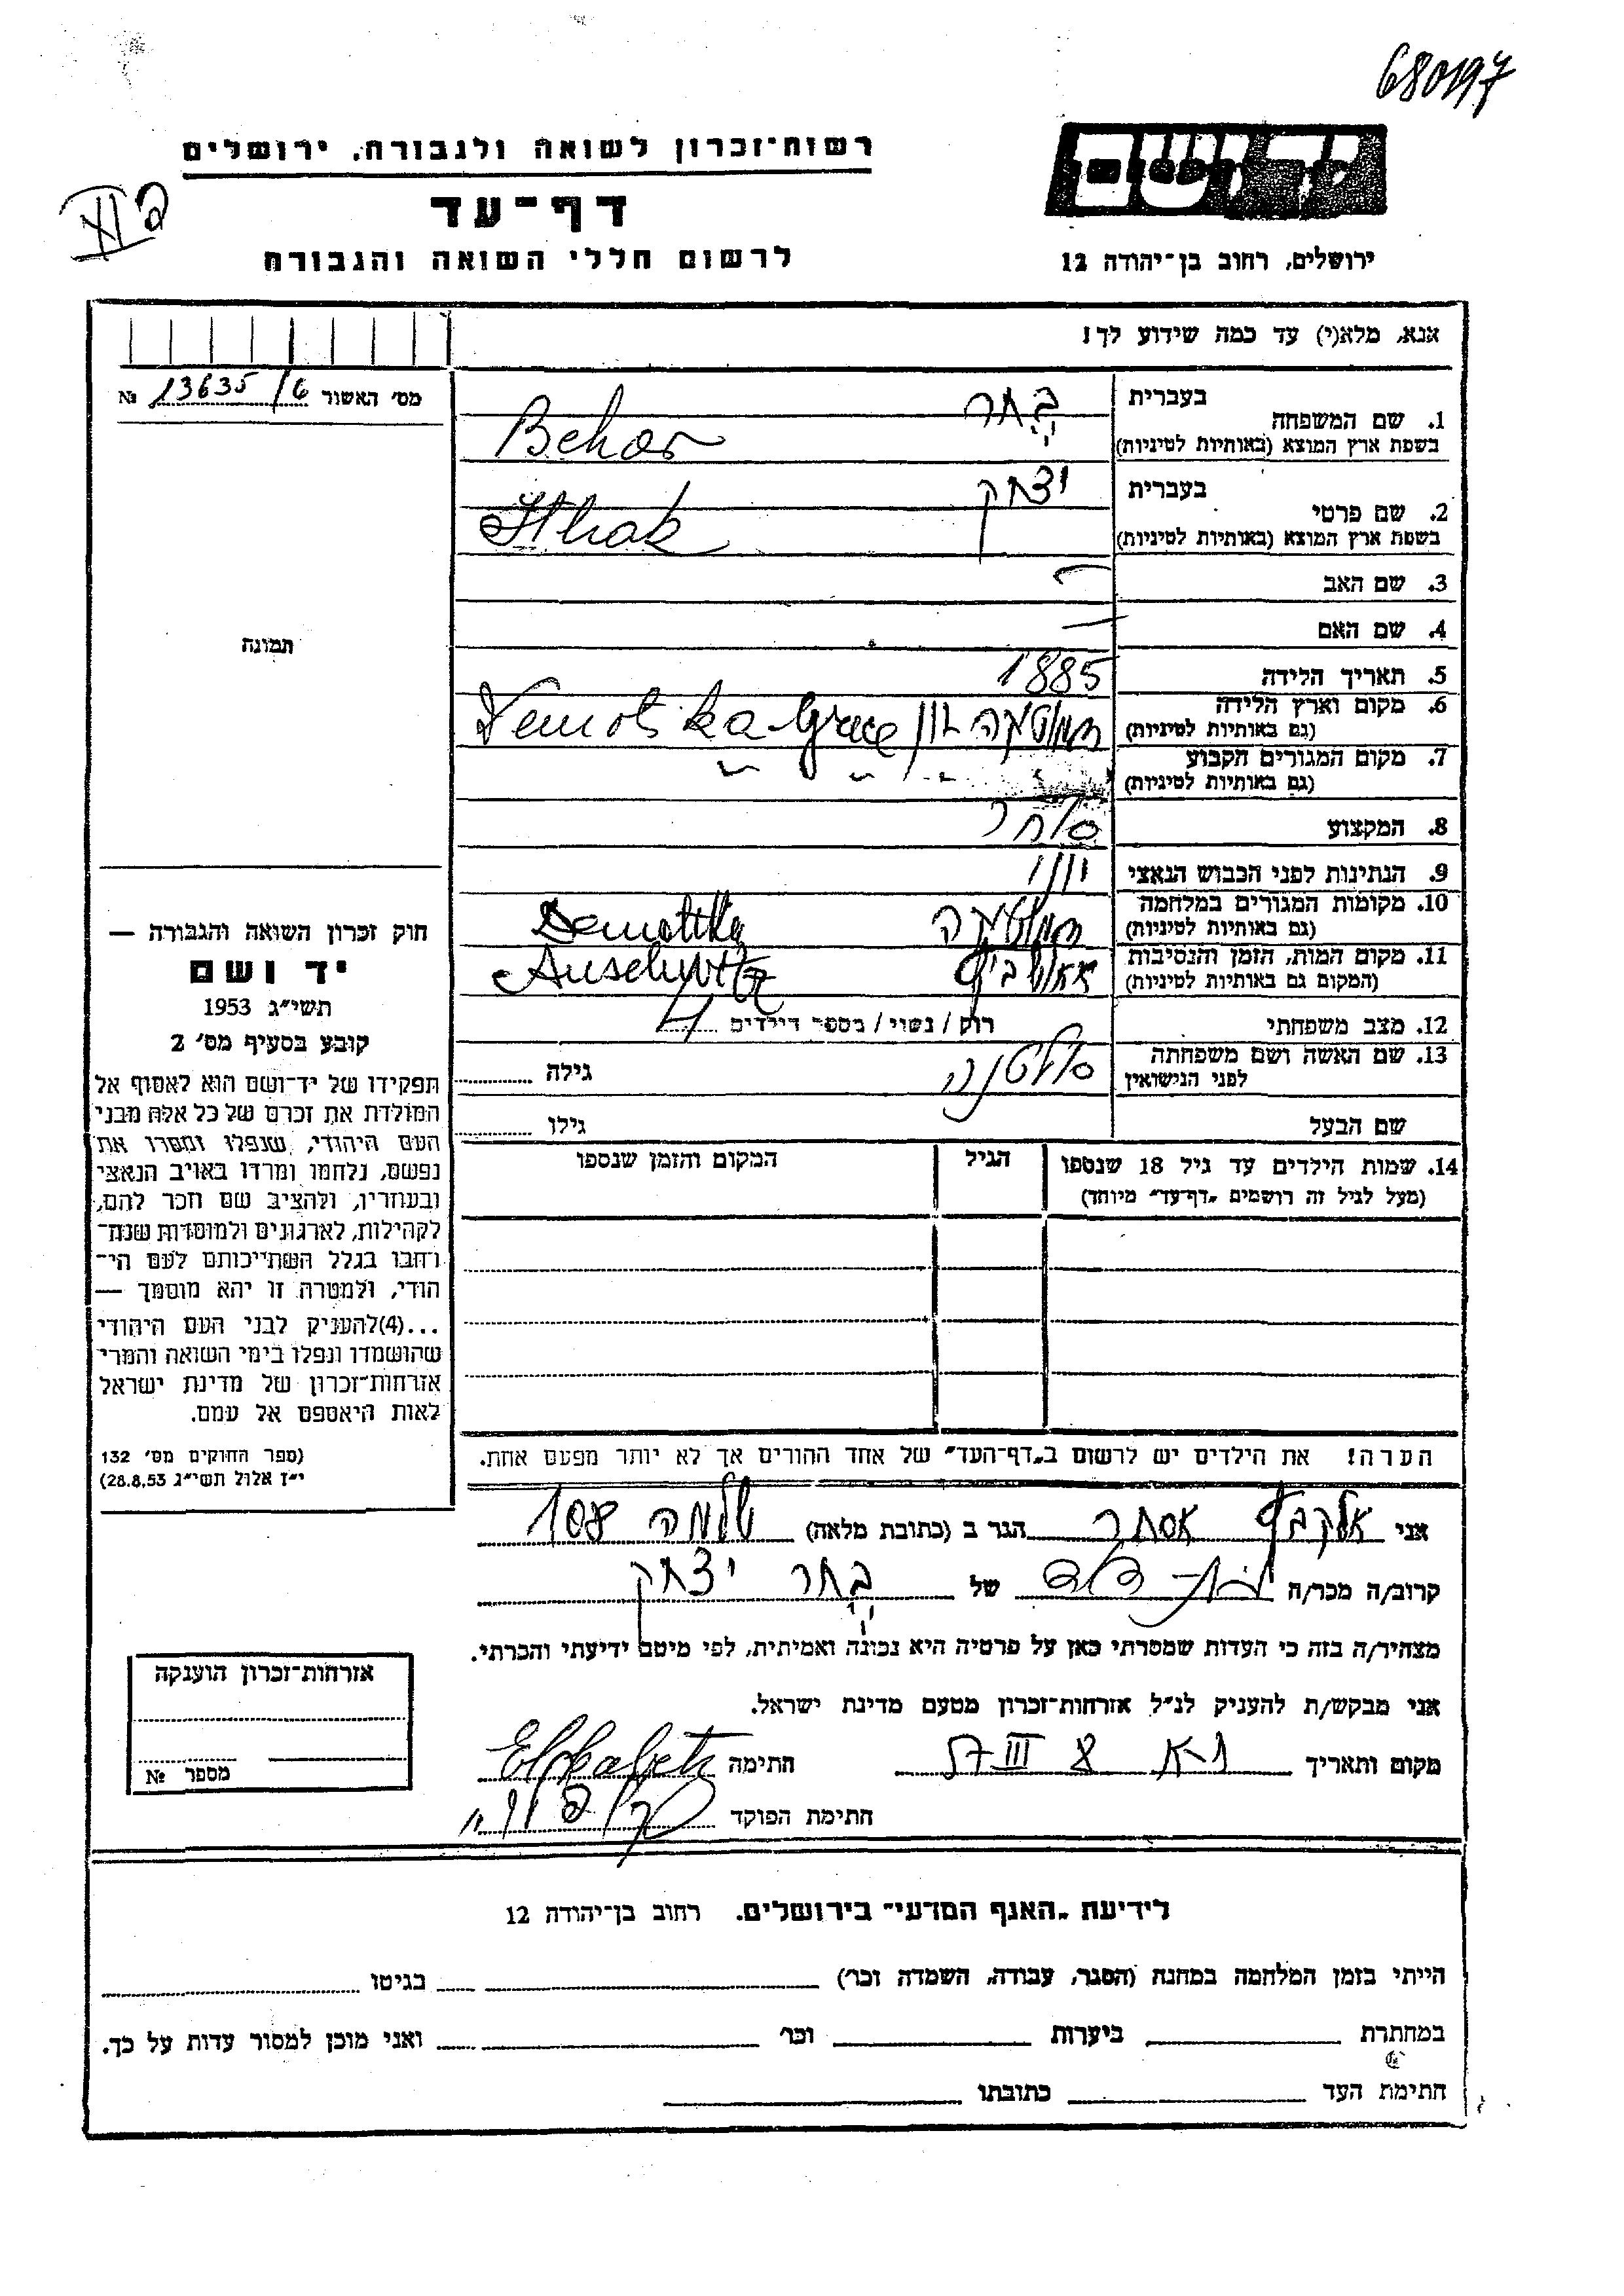 680197
יד ושם
רשות־זכרון לשואה ולגבורה, ירושלים
דף־עד
לרשום חללי השואה והגבורה
ירושלים, רחוב בן־יהודה 12
אנא, מלא(י) עד כמה שידוע לך!
מס׳ האשור 13635/6 №
תמונה
1. שם המשפחה
בעברית בחר
בשפת ארץ המוצא (באותיות לטיניות) Behar
2. שם פרטי
בעברית יצחק
בשפת ארץ המוצא (באותיות לטיניות)
3. שם האב —
4. שם האם —
5. תאריך הלידה 1885
6. מקום וארץ הלידה
(גם באותיות לטיניות) יון Demotska - Grece
7. מקום המגורים הקבוע
(גם באותיות לטיניות)
8. המקצוע סוחר
9. הנתינות לפני הכבוש הנאצי יון
10. מקומות המגורים במלחמה
(גם באותיות לטיניות) Demottka
11. מקום המות, הזמן והנסיבות
(המקום גם באותיות לטיניות) אאושביץ Auschwitz
12. מצב משפחתי רוק / נשוי / מספר הילדים 4
13. שם האשה ושם משפחתה
לפני הנישואין סולטנה גילה
שם הבעל גילו
14. שמות הילדים עד גיל 18 שנספו הגיל המקום והזמן שנספו
(מעל לגיל זה רושמים „דף־עד״ מיוחד)
הערה! את הילדים יש לרשום ב„דף־העד״ של אחד ההורים אך לא יותר מפעם אחת.
חוק זכרון השואה והגבורה —
יד ושם
תשי״ג 1953
קובע בסעיף מס׳ 2
תפקידו של יד־ושם הוא לאסוף אל
המולדת את זכרם של כל אלה מבני
העם היהודי, שנפלו ומסרו את
נפשם, נלחמו ומרדו באויב הנאצי
ובעוזריו, ולהציב שם וזכר להם,
לקהילות, לארגונים ולמוסדות שנח־
רחבו בגלל השתייכותם לעם הי־
הודי, ולמטרה זו יהא מוסמך —
...(4)להעניק לבני העם היהודי
שהושמדו ונפלו בימי השואה והמרי
אזרחות־זכרון של מדינת ישראל
לאות היאספם אל עמם.
(ספר החוקים מס׳ 132
י״ז אלול תשי״ג 28.8.53)
אני אלקבץ אסתר הגר ב (כתובת מלאה) שלמה 108
קרוב/ה מכר/ה בת-דוד של בחר יצחק
מצהיר/ה בזה כי העדות שמסרתי כאן על פרטיה היא נכונה ואמיתית, לפי מיטב ידיעתי והכרתי.
אני מבקש/ת להעניק לנ״ל אזרחות־זכרון מטעם מדינת ישראל.
מקום ותאריך ת-א 8 III 57 חתימה Elkabetz
חתימת הפוקד
אזרחות־זכרון הוענקה
מספר №
לידיעת „האגף המדעי״ בירושלים. רחוב בן־יהודה 12
הייתי בזמן המלחמה במחנה (הסגר, עבודה, השמדה וכו׳) בגיטו
במחתרת ביערות וכו׳ ואני מוכן למסור עדות על כך.
חתימת העד כתובתו